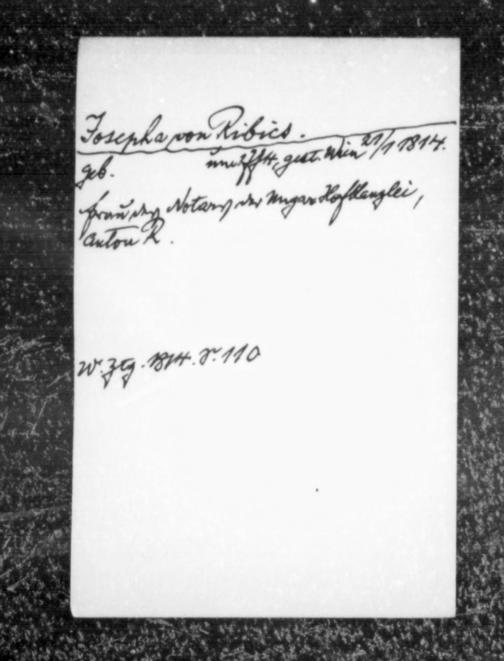 Josepha von Ribics.
geb. um gest. Wien 21/1 1814.
Frau des Notars der Ungar Hofkanzlei,
Anton R.
W. Ztg. 1814. S. 110